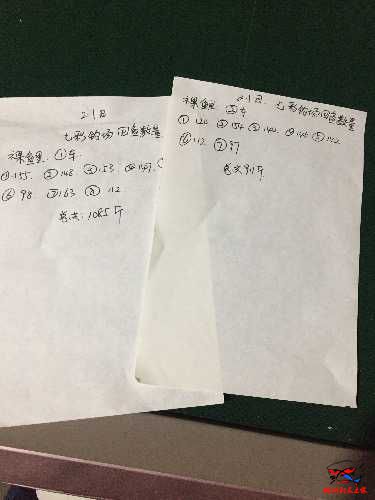 21日
七彩钓场回鱼数量
裸鱼里 ①车.
①155. ②148 ③153. ④149.
⑥ 98. ⑦163 ⑧ 112
总共: 1085斤
21日. 七彩钓场回鱼数量
裸鱼里 ②车
① 120 ② 154 ③ ④ ⑤
⑥112 ⑦97
总共911斤